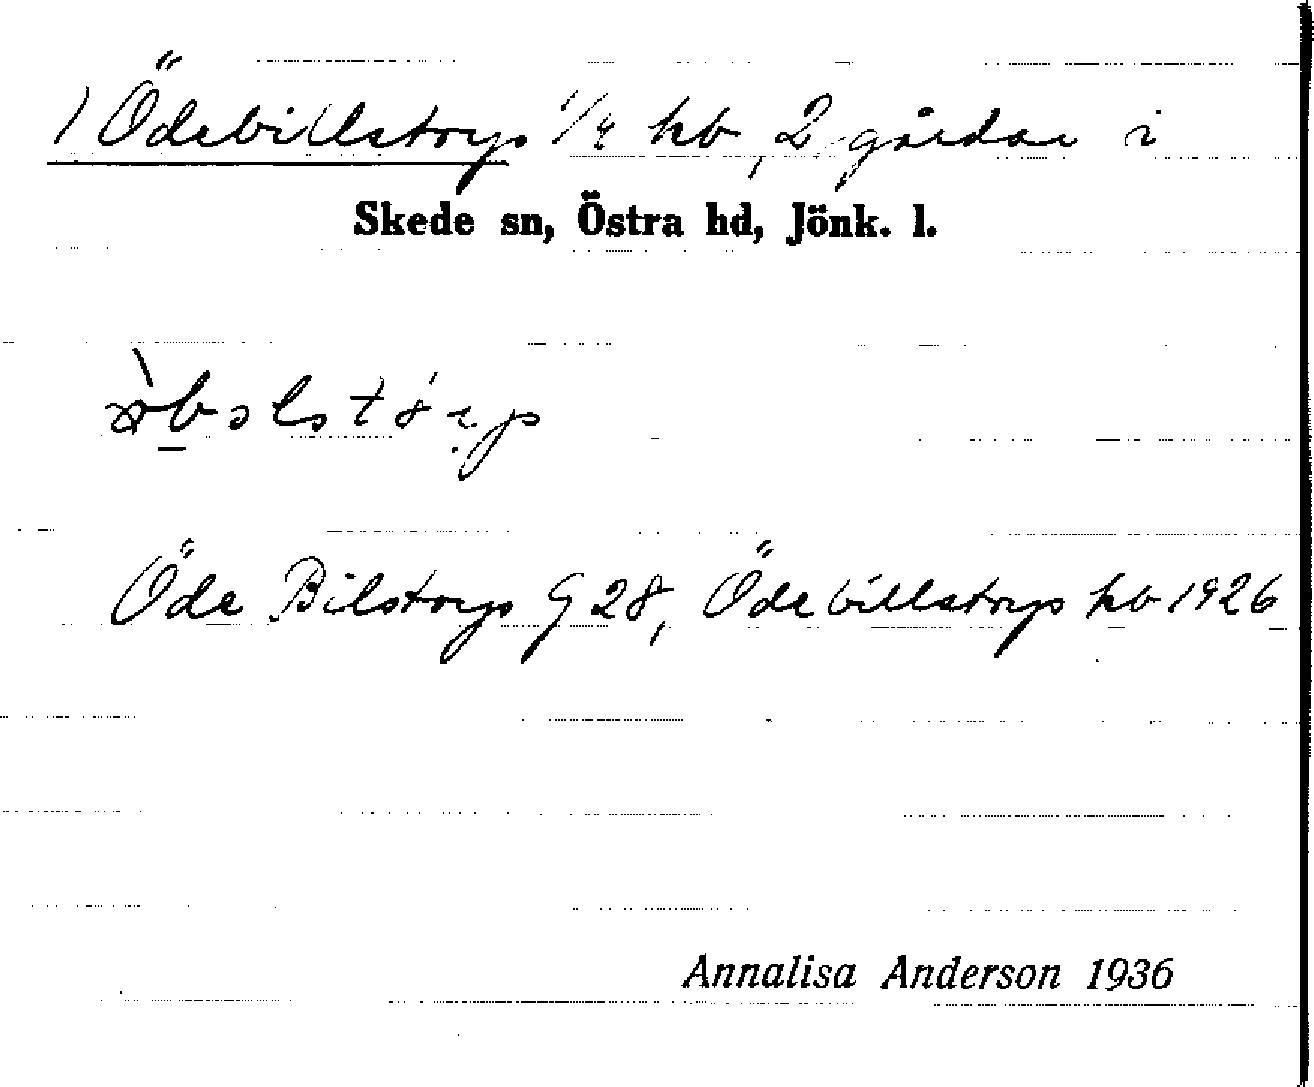 1) Ödebillstorp 1/4 hb, 2 gårdar i
Skede sn, Östra hd, Jönk. l.
Öde Bilstorp G 28, Ödebillstorp hb 1926
Annalisa Anderson 1936